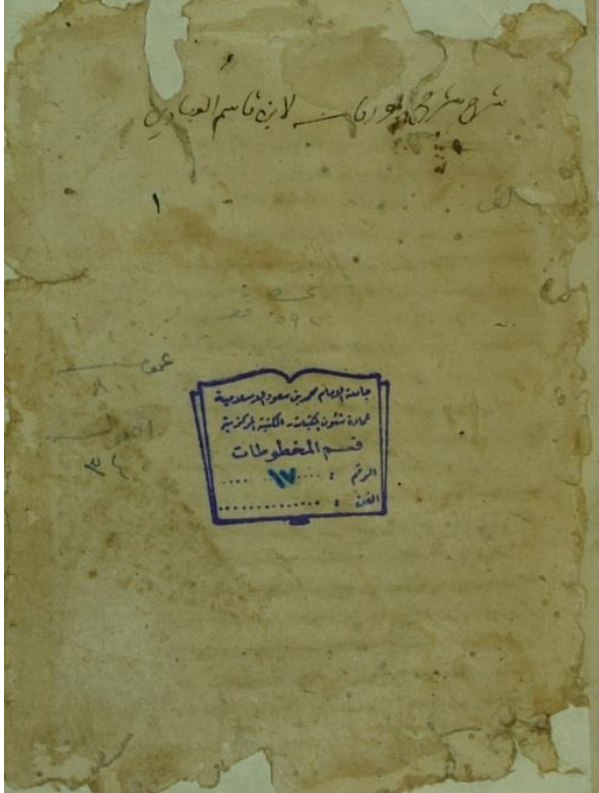 شرح شرح الورقات لابن قاسم العبادي
١
عمومي
٨
٣٤
جامعة الإمام محمد بن سعود الإسلامية
عمادة شئون المكتبات - المكتبة المركزية
قسم المخطوطات
الرقم : ١٧
الفن :